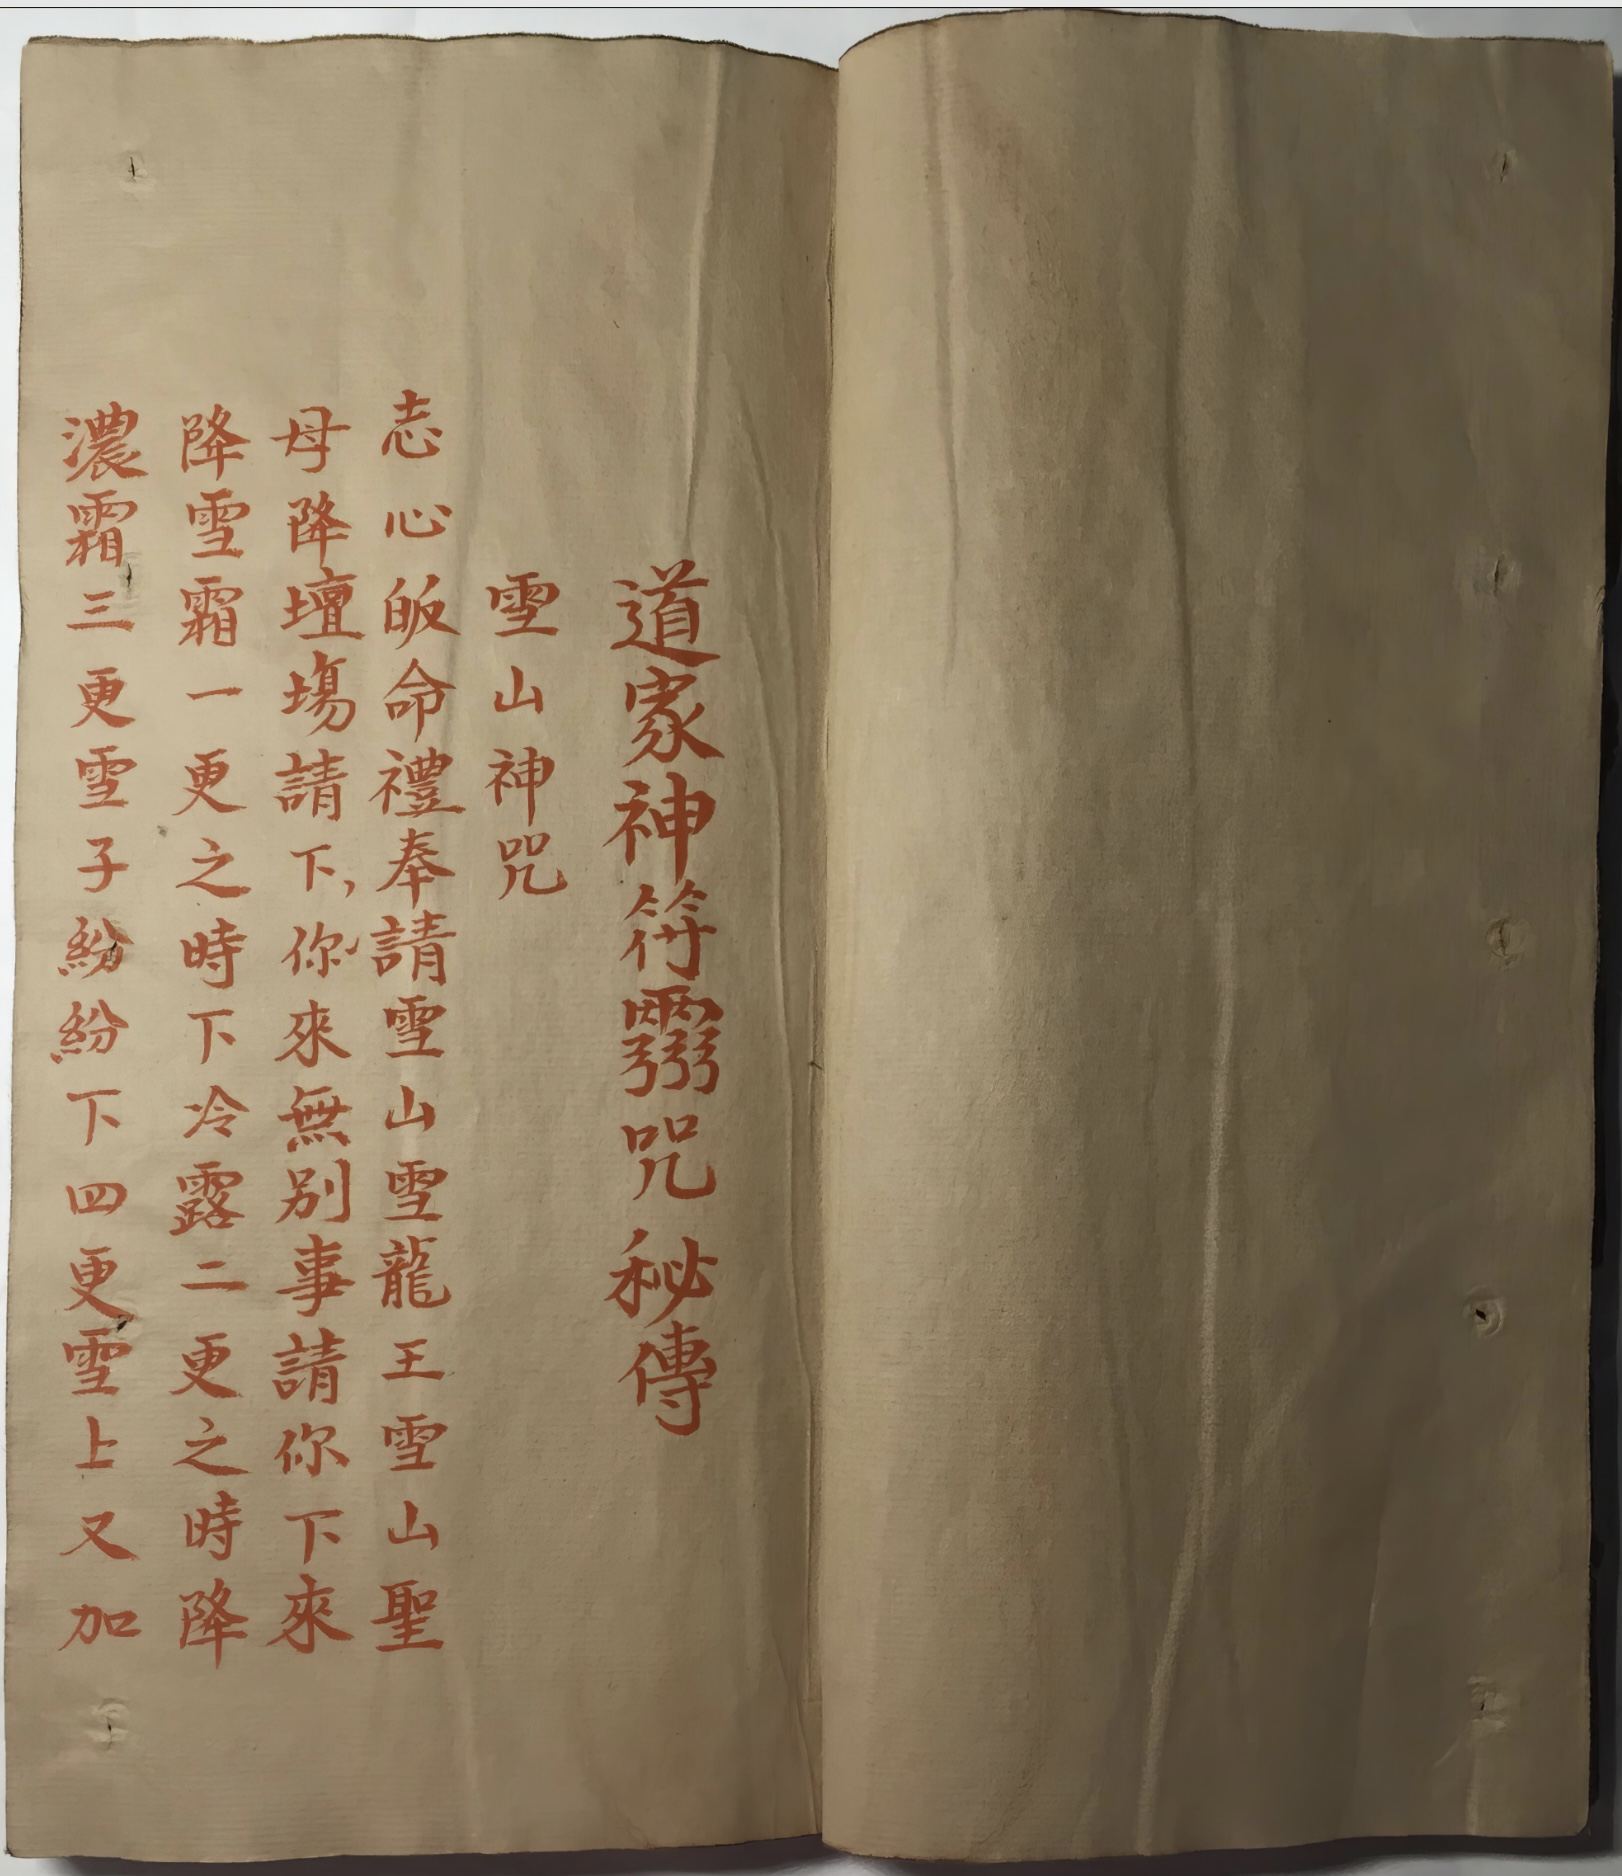 道家神符靈咒秘傳
雪山神咒
志心皈命禮奉請雪山雪龍王雪山聖
母降壇塲請下,你來無別事請你下來
降雪霜一更之時下冷露二更之時降
濃霜三更雪子紛紛下四更雪上又加